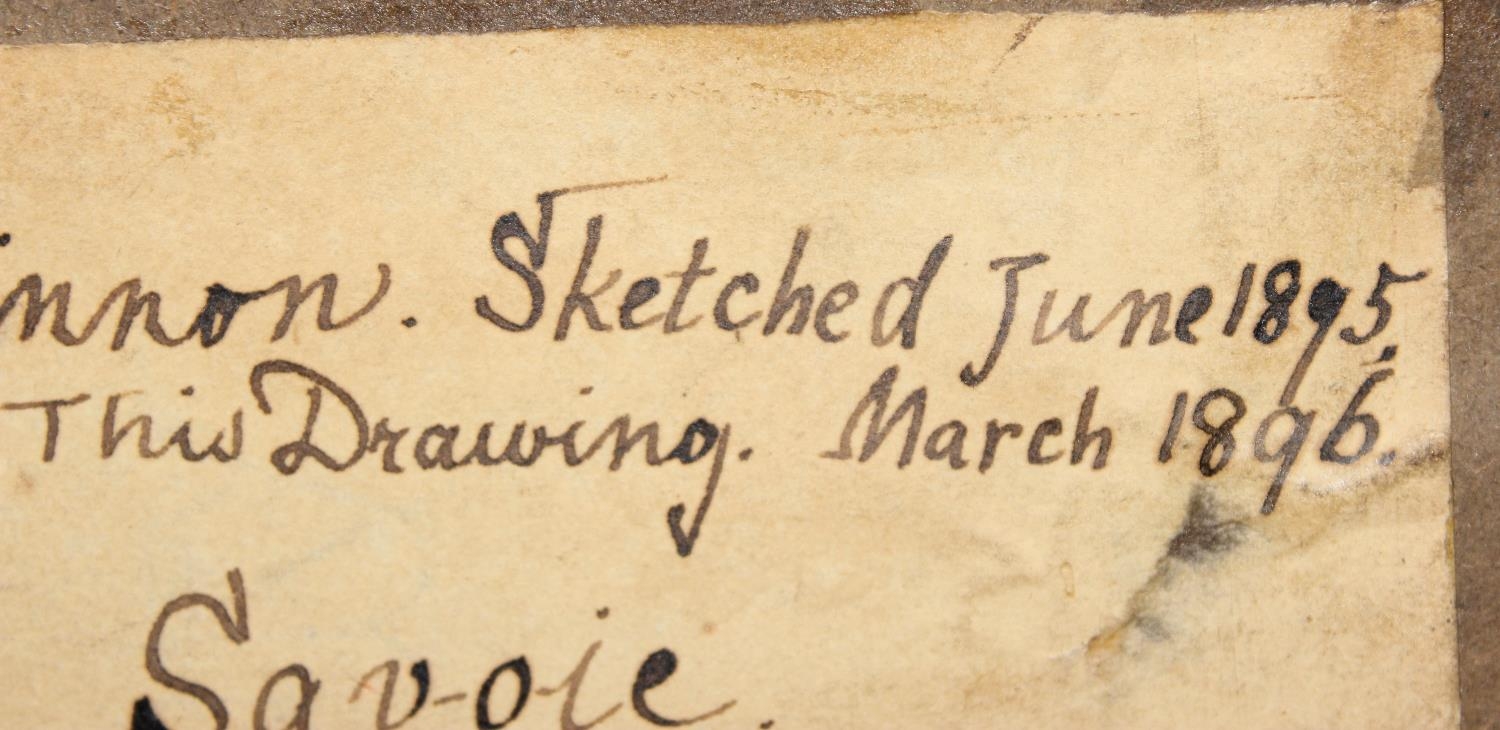 innon. Sketched June 1895.
This Drawing. March 1896.
Savoie.